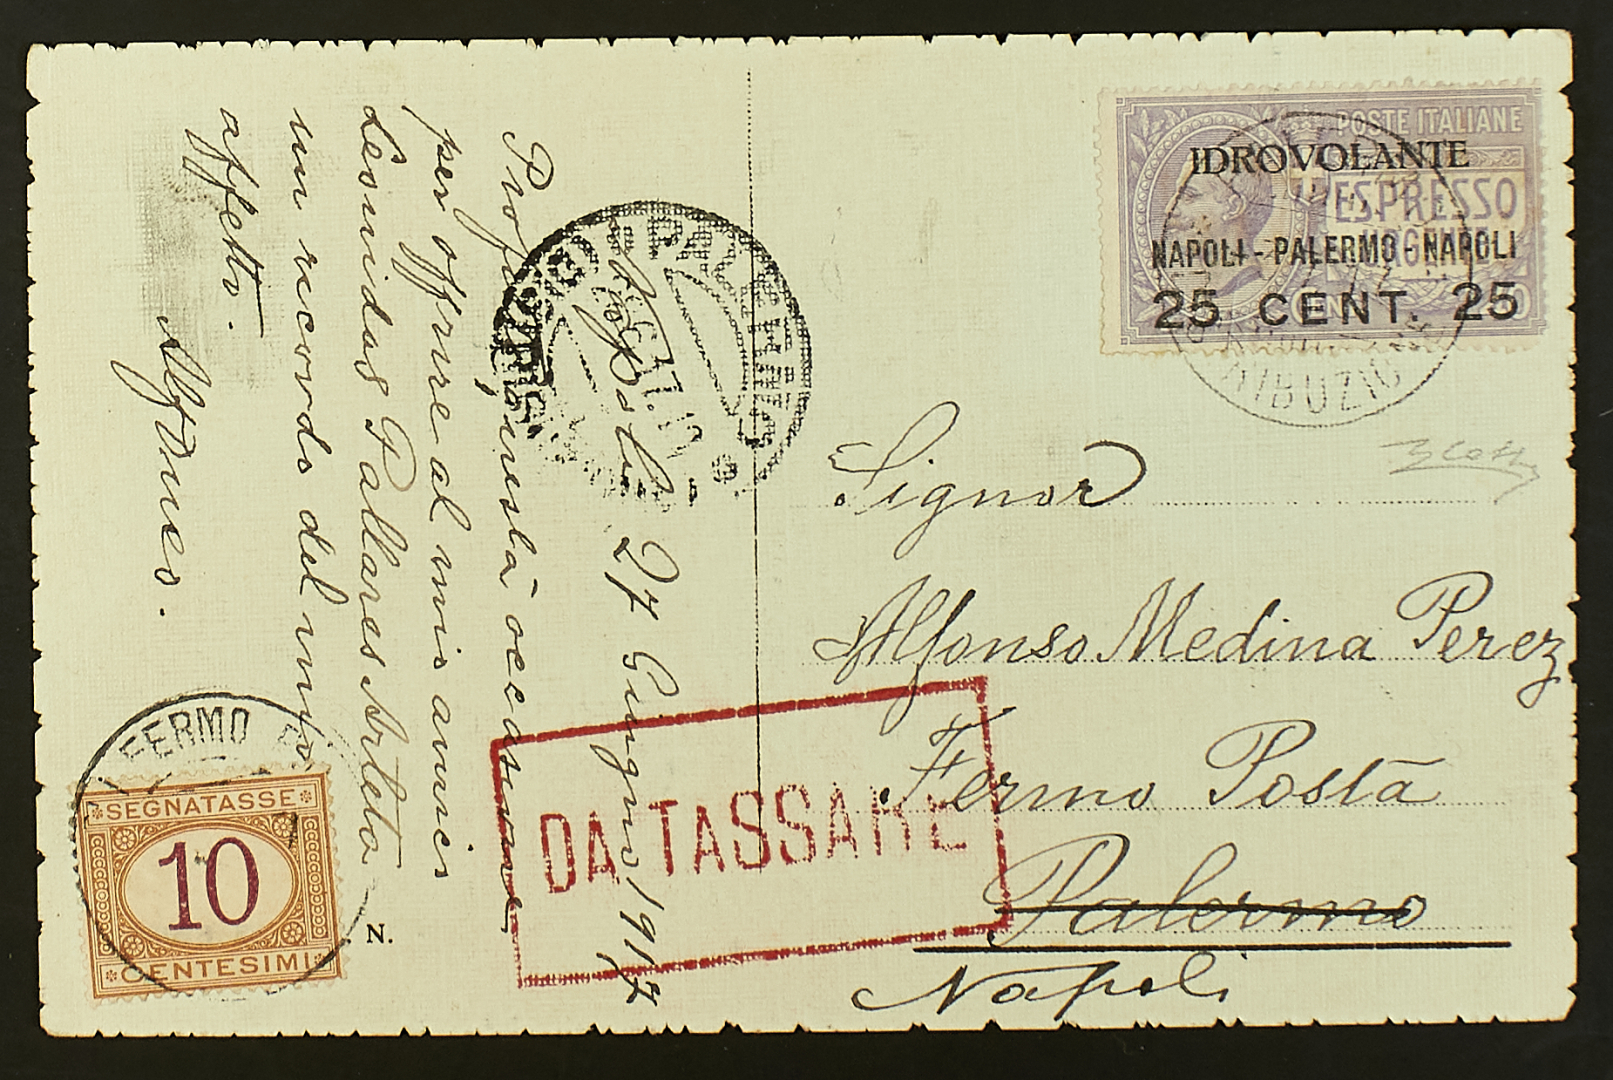 POSTE ITALIANE
IDROVOLANTE
ESPRESSO
NAPOLI - PALERMO - NAPOLI
25 CENT. 25
Signor
Alfonso Medina Perez
Fermo Posta
Palermo
Napoli
27 Giugno 1917
occasione
per offrire al mio amico
Leonidas Pallares Arteta
un ricordo del mio
affetto.
DA TASSARE
FERMO
SEGNATASSE
10
CENTESIMI
N.